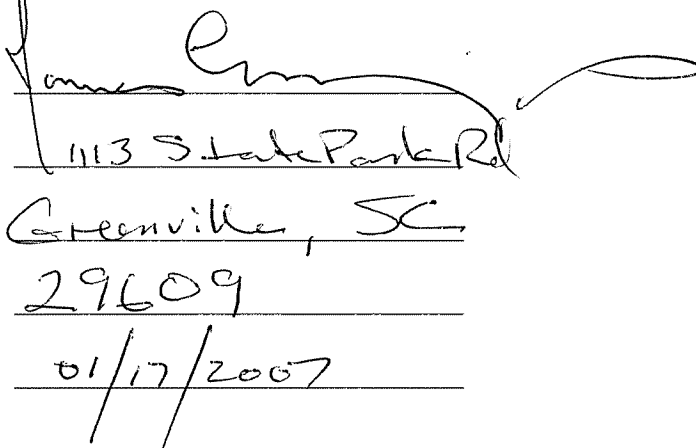 1113 State Park Rd
Greenville, SC
29609
01/17/2007